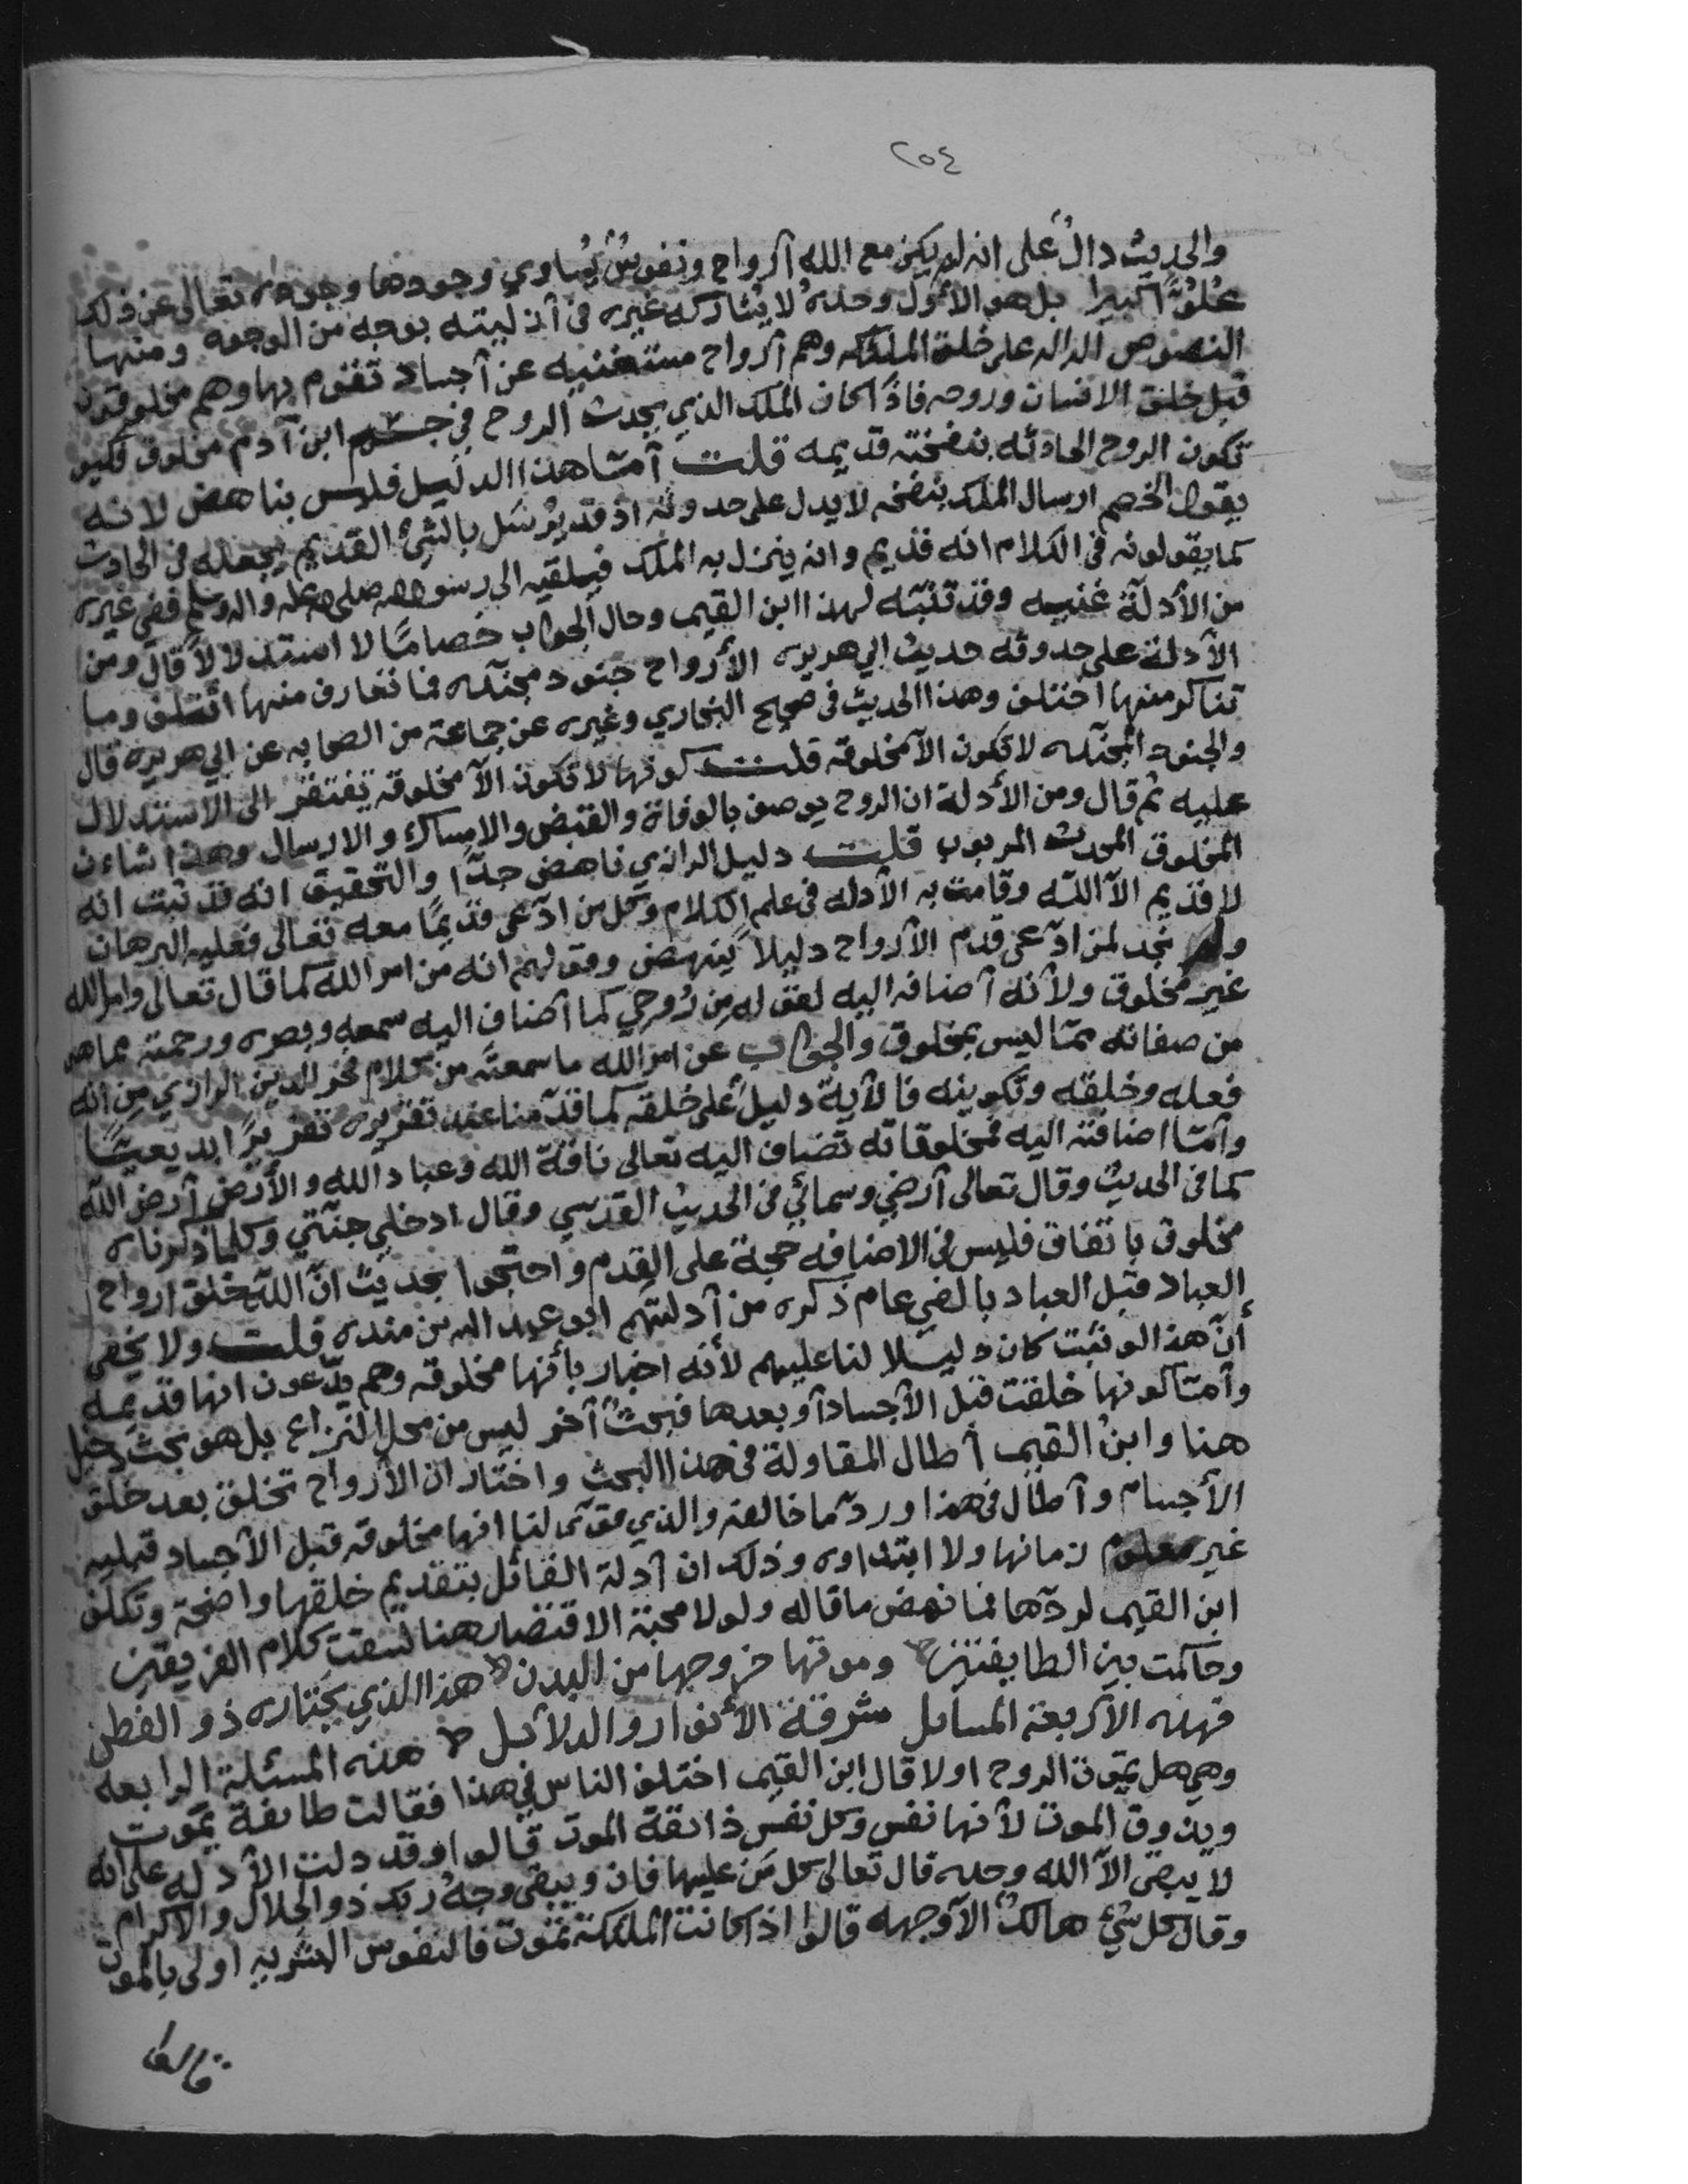 ٢٥٤
والحديث دالٌ على انه لم يكن مع الله أرواح ونفوس يُساوي وجودها وجوده تعالى عن ذلك
علوًّا كبيرا بل هو الأول وحده لا يشاركه غيره في أزليته بوجه من الوجوه ومنها
النصوص الداله على خلق الملئكه وهم أرواح مستغنيه عن أجساد تقوم بها وهم مخلوقون
قبل خلق الانسان وروحه فاذا كان الملك الذي يحدث الروح في جسم ابن آدم مخلوق فكيف
تكون الروح الحادثه بنفخته قديمه قلت أمّا هذا الدليل فليس بناهض لانه
يقول الخصم ارسال الملك بنفخه لا يدل على حدوثه اذ قد يُرسَل بالشيء القديم يجعله في الحادث
كما يقولونه في الكلام انه قديم وانه ينزل به الملك فيلقيه الى رسول الله صلى الله عليه واله وسلم ففي غيره
من الأدلة غنيه وقد تنبّه لهذا ابن القيم وحال الجواب خصامًا لا استدلالاً قال ومن
الأدلة على حدوثه حديث ابي هريره الأرواح جنود مجنّده فما تعارف منها ائتلف وما
تناكر منها اختلف وهذا الحديث في صحيح البخاري وغيره عن جماعة من الصحابه عن ابي هريره قال
والجنود المجنّده لا تكون الاّ مخلوقه قلت كونها لا تكون الاّ مخلوقه يفتقر الى الاستدلال
عليه ثم قال ومن الأدلة ان الروح يوصف بالوفاة والقبض والامساك والارسال وهذا شان
المخلوق المحدث المربوب قلت دليل الرازي ناهض جدّا والتحقيق انه قد ثبت انه
لا قديم الاّ الله وقامت به الأدله في علم الكلام وكل من ادّعى قديمًا معه تعالى فعليه البرهان
ولم نجد لمن ادّعى قدم الأرواح دليلا ينهض وقولهم انه من امر الله كما قال تعالى وامر الله
غير مخلوق ولأنه أضافه اليه لقوله من رُوحي كما أضاف اليه سمعه وبصره ورحمته مما هو
من صفاته ممّا ليس بمخلوق والجواب عن امر الله ما سمعته من كلام فخر الدين الرازي من انه
فعله وخلقه وتكوينه فالآية دليل على خلقه كما قدّمنا عند تقريره تقريرًا بديعيًّا
وأمّا اضافته اليه فمخلوقاته تضاف اليه تعالى ناقة الله وعباد الله والأرض أرض الله
كما في الحديث وقال تعالى أرضي وسمائي في الحديث القدسي وقال ادخلي جنّتي وكلما ذكرناه
مخلوق باتفاق فليس في الاضافه حجة على القدم واحتجوا بحديث انّ الله خلق ارواح
العباد قبل العباد بالفي عام ذكره من أدلتهم ابو عبد الله بن منده قلت ولا يخفى
أنّ هذا لو ثبت كان دليلا لنا عليهم لأنه اخبار بأنها مخلوقه وهم يدّعون انها قديمه
وأمّا كونها خلقت قبل الأجساد أو بعدها فبحثٌ آخر ليس من محل النزاع بل هو بحث دخيل
هنا وابن القيم أطال المقاولة في هذا البحث واختار ان الأرواح تخلق بعد خلق
الأجسام وأطال في هذا وردّ ما خالفه والذي قوّى لنا انها مخلوقه قبل الأجساد قبليه
غير معلوم زمانها ولا ابتداوه وذلك ان أدلة القائل بتقديم خلقها واضحة وتكلف
ابن القيم لردّها فما نهض ما قاله ولولا محبة الاقتصار هنا لسقت كلام الفريقين
وحاكمت بين الطايفتين وموتها خروجها من البدن هذا الذي يختاره ذو الفطن
فهذه الأربعة المسايل مشرقة الأنوار والدلائل هذه المسئلة الرابعه
وهي هل يموت الروح او لا قال ابن القيم اختلف الناس في هذا فقالت طائفة يموت
ويذوق الموت لأنها نفس وكل نفس ذائقة الموت قالوا وقد دلت الأدله على انه
لا يبقى الاّ الله وحده قال تعالى كل مَن عليها فان ويبقى وجهُ ربك ذو الجلال والاكرام
وقال كل شيء هالكٌ الاّ وجهه قالوا اذا كانت الملئكة تموت فالنفوس البشريه اولى بالموت
قالوا